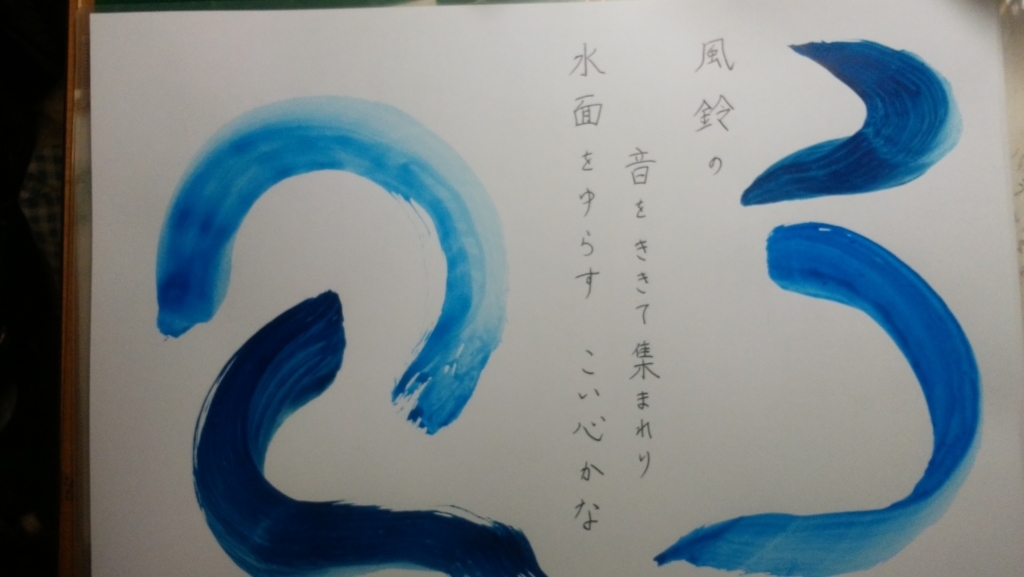 風鈴の
音をききて集まれり
水面をゆらす こい心かな